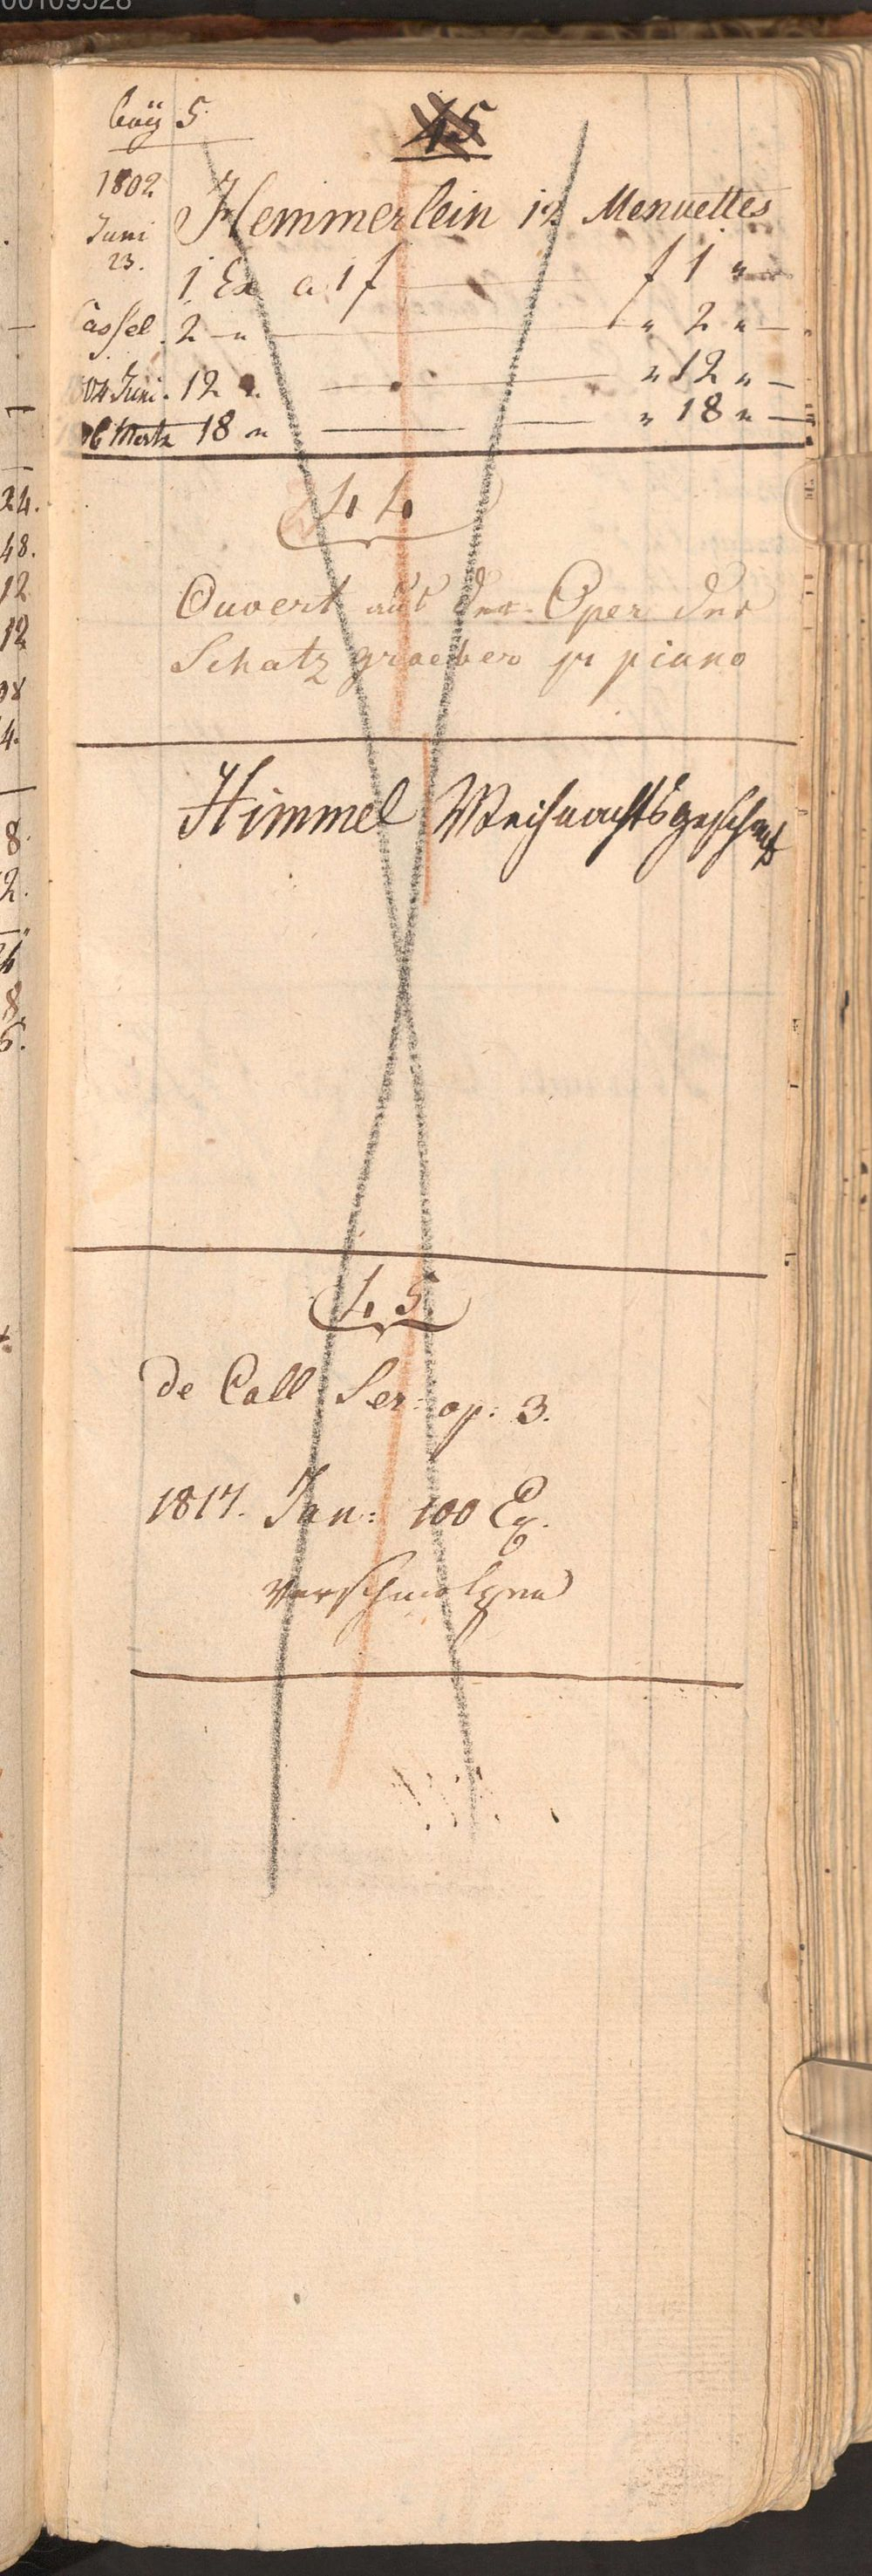 00109528
beÿ 5.
45
1802 Hemmerlein 12 Menuettes
Juni
23. 1 Ex a 1 f — f 1 " —
Cassel. 2 — " — " 2 " —
804 Juni. 12 " — " 12 " —
06 Mertz 18 " — " 18 " —
44
Ouvert aus der Oper der
Schatz graeber pr piano
Himmel Weihnachtsgeschenk
45
de Call Ser: op: 3.
1817. Jan: 100 Ex.
verschmolzen
24.
48.
12
12
4.
8.
2.
8